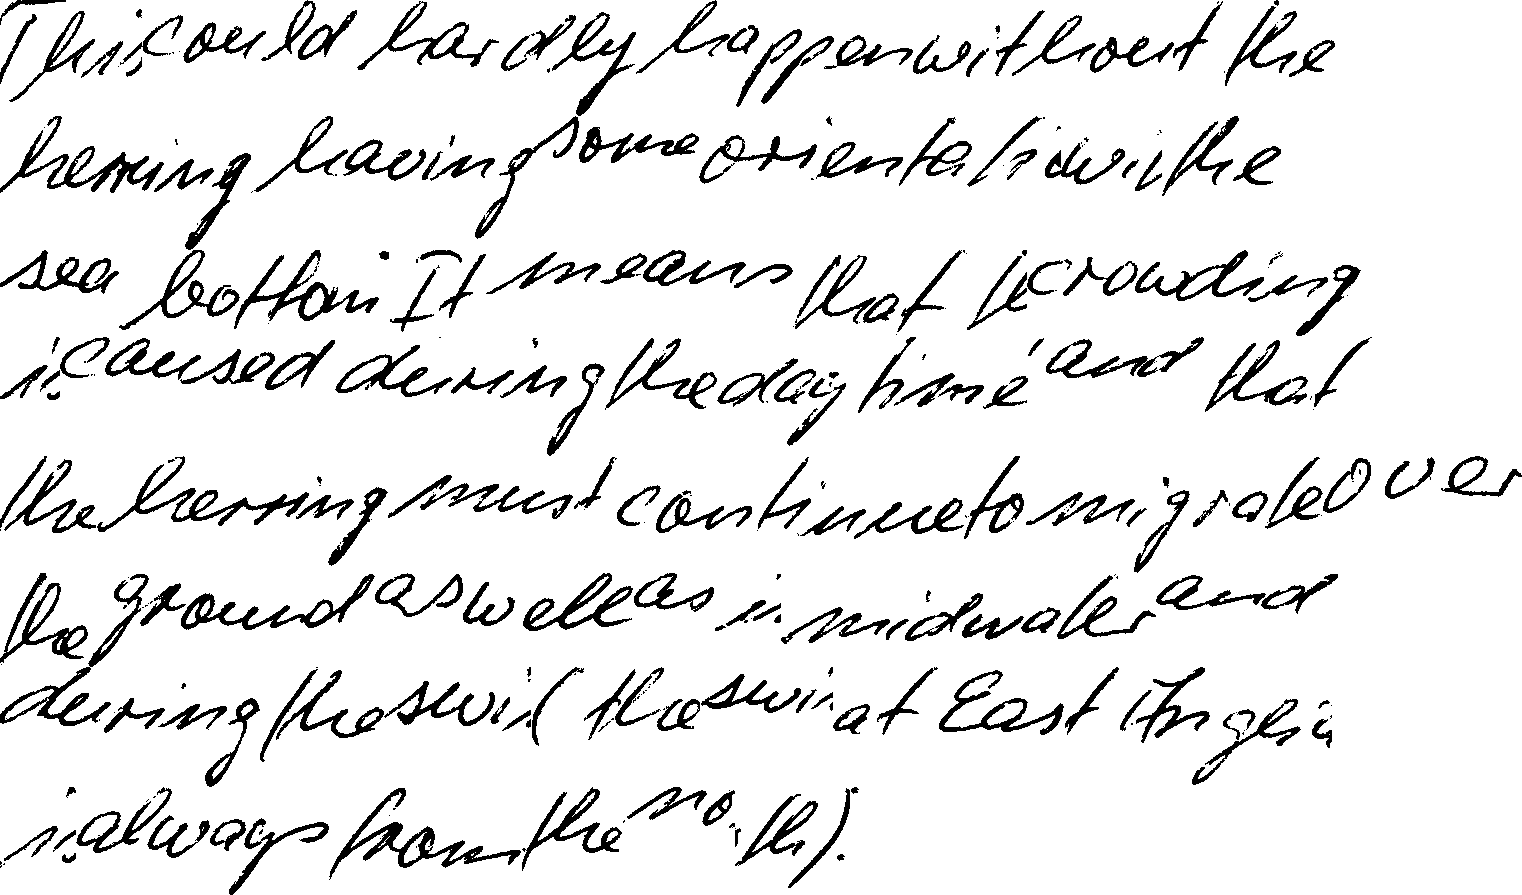 This could hardly happen without the
herring having some orientation with the
sea bottom It means that the crowding
is caused during the daytime and that
the herring must continue to migrate over
the ground as well as in midwater and
during the swirl (the swirl at East Anglia
is always from the north).